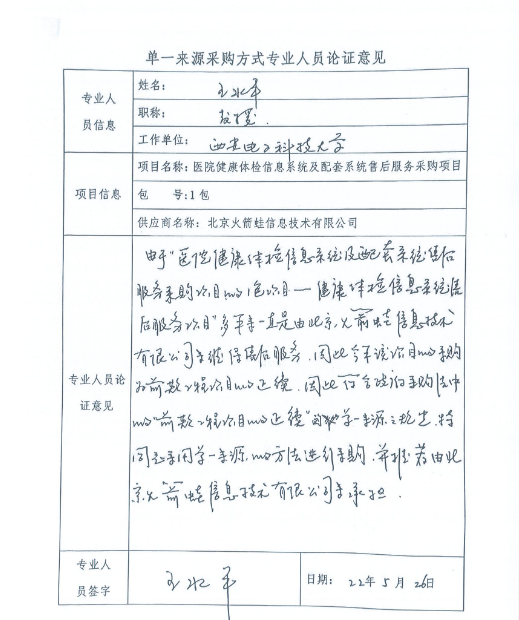 单一来源采购方式专业人员论证意见
专业人员信息
姓名：
职称：教授
工作单位：西安电子科技大学
项目信息
项目名称：医院健康体检信息系统及配套系统售后服务采购项目
包 号：1包
供应商名称：北京火箭蛙信息技术有限公司
专业人员论证意见
由于“医院健康体检信息系统及配套系统售后
服务采购项目的1包项目——健康体检信息系统售
后服务项目”多年来一直是由北京火箭蛙信息技术
有限公司来维保售后服务，因此今年该项目的采购
为前款工程项目的延续，因此符合政府采购法中
的“前款工程项目的延续”单一来源之规定，特
同意采用单一来源的方法进行采购，并推荐由北
京火箭蛙信息技术有限公司来承担．
专业人员签字
日期： 22年5月26日